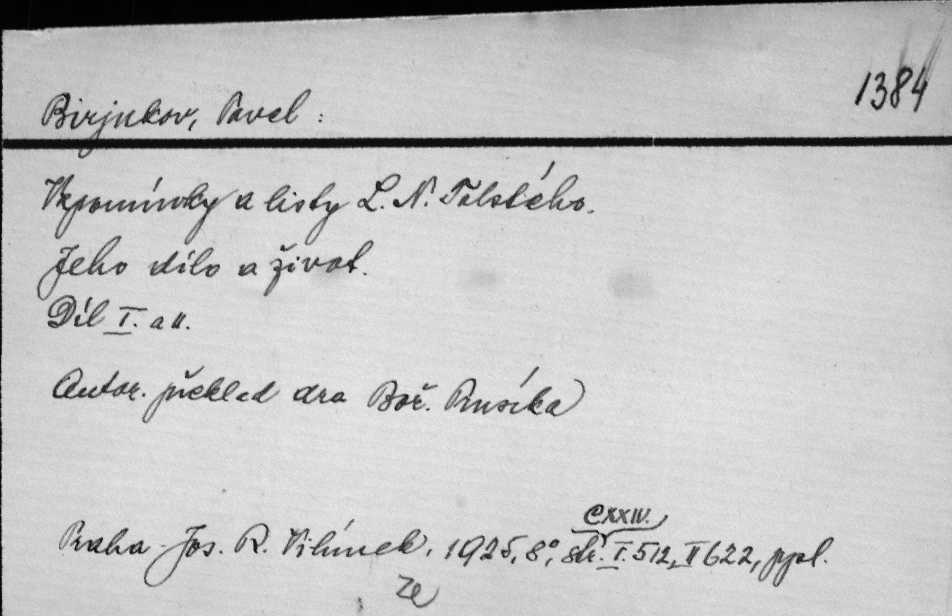 1384
Birjukov, Pavel :
Vzpomínky a listy L. N. Tolstého.
Jeho dílo a život.
Díl I. a II.
Autor. překlad dra Boř. Prusíka
CXXIV.
Praha Jos. R. Vilímek, 1925, 8°, str. I. 512, II 622, ppl.